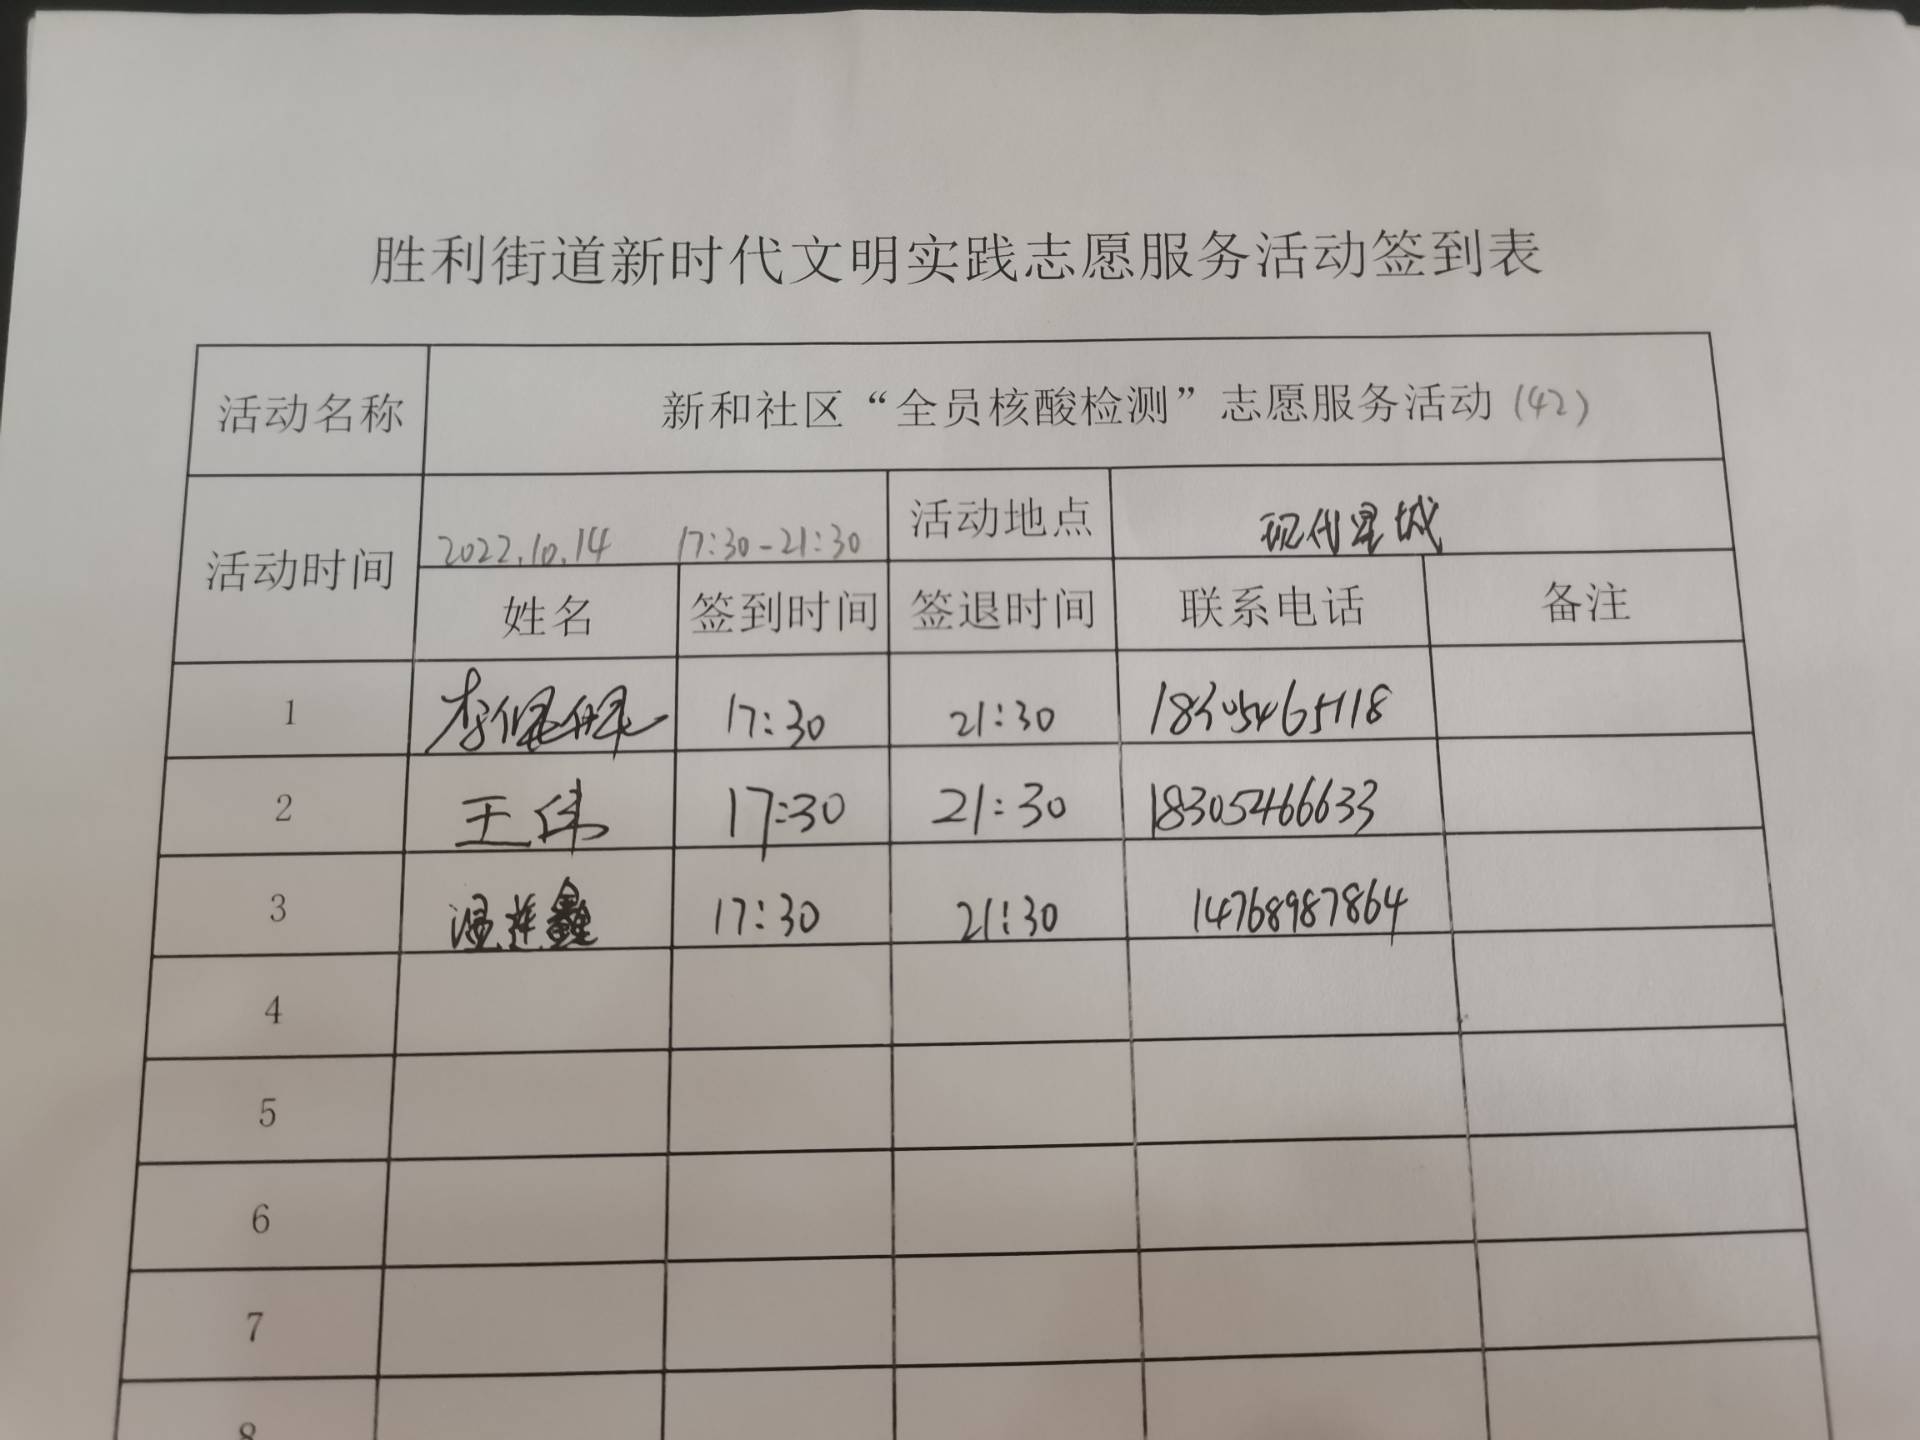 胜利街道新时代文明实践志愿服务活动签到表
活动名称 新和社区“全员核酸检测”志愿服务活动(42)
活动时间 2022.10.14 17:30-21:30 活动地点 现代星城
姓名 签到时间 签退时间 联系电话 备注
1 17:30 21:30 18305465118
2 王伟 17:30 21:30 18305466633
3 温莲鑫 17:30 21:30 14768987864
4
5
6
7
8